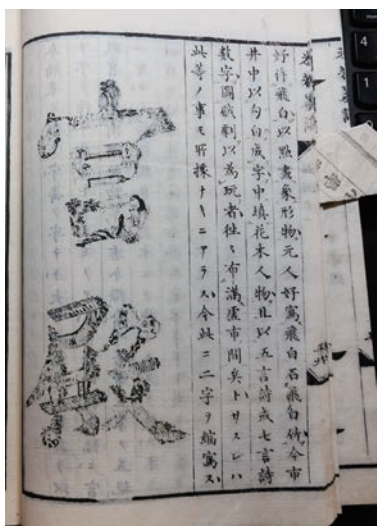 好作飛白、以點畫象形物、元人好寫飛白石、飛白竹、今市
井中以勾白成字、中填花木人物、且以五言詩或七言詩
數字、圖戲劇以為玩者、往々布滿廛市間矣、トサスレハ
此等ノ事モ所據ナキニアラス、今此ニ二字ヲ縮寫ス、
宮殿